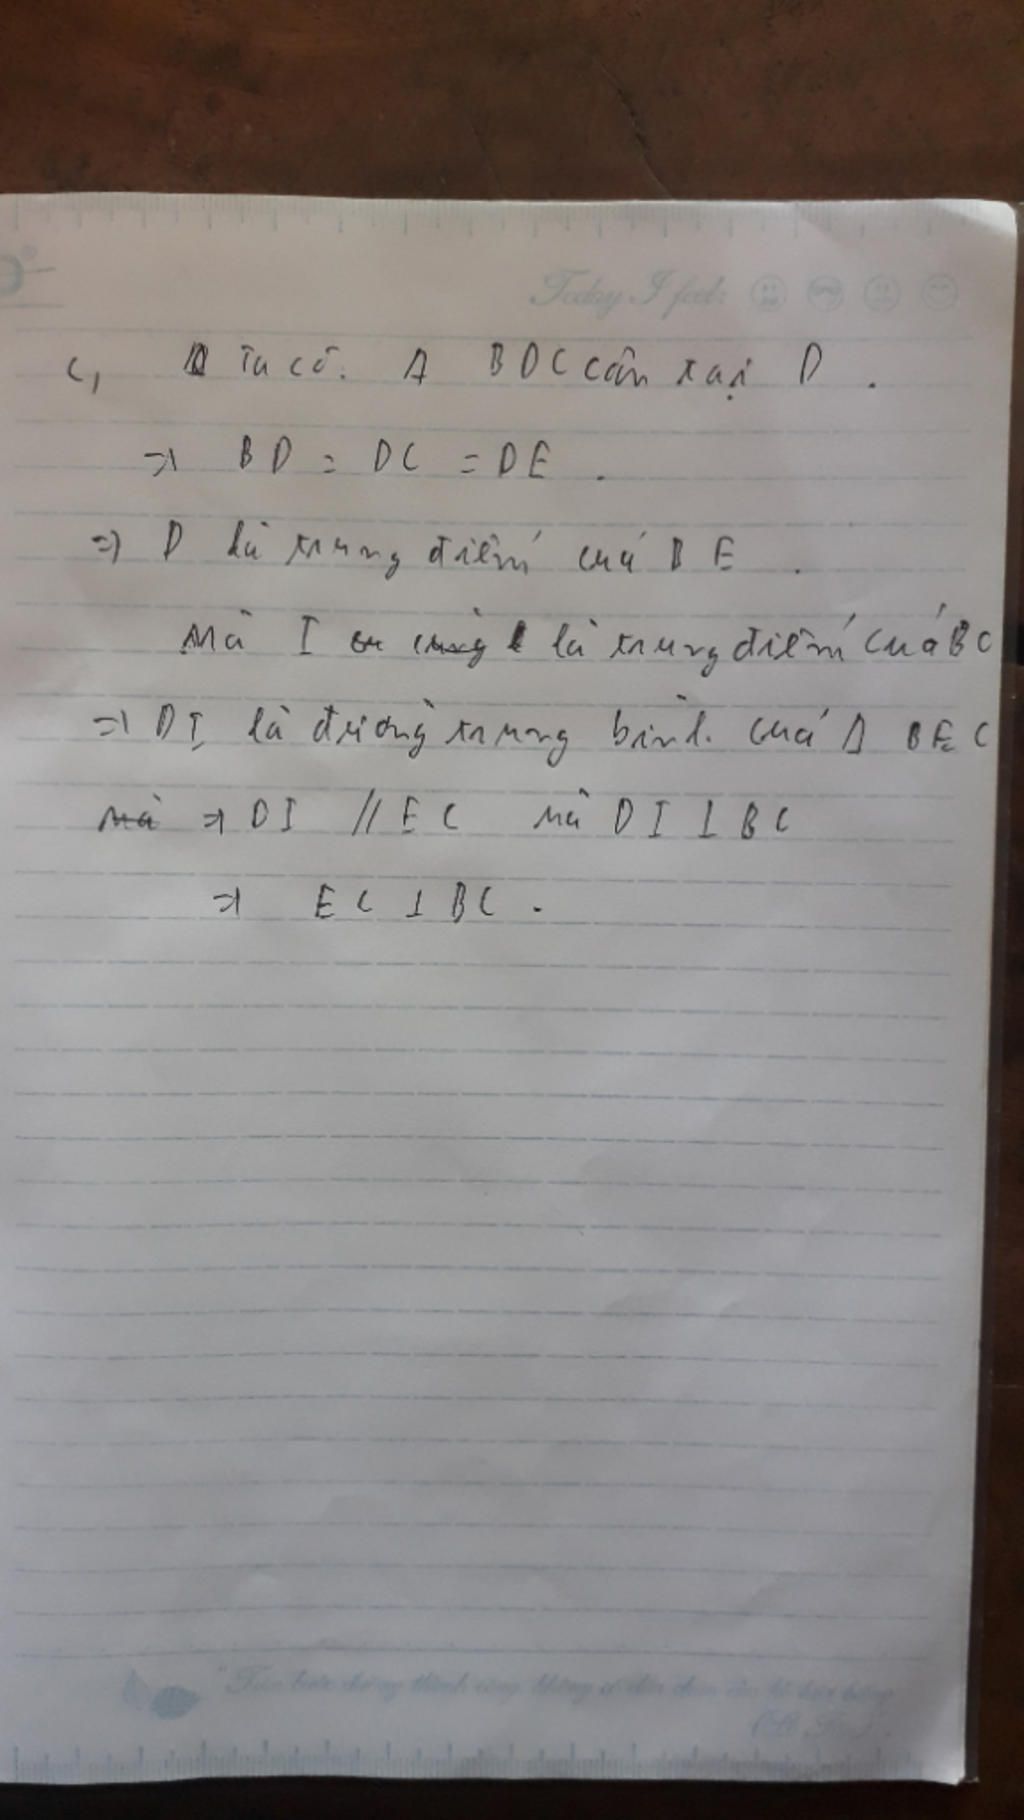 Today I feel:
c, Ta có: Δ BDC cân tại D.
=> BD = DC = DE.
=> D là trung điểm của BE.
Mà I là trung điểm của BC
=> DI là đường trung bình của Δ BEC
mà => DI // EC mà DI ⊥ BC
=> EC ⊥ BC.